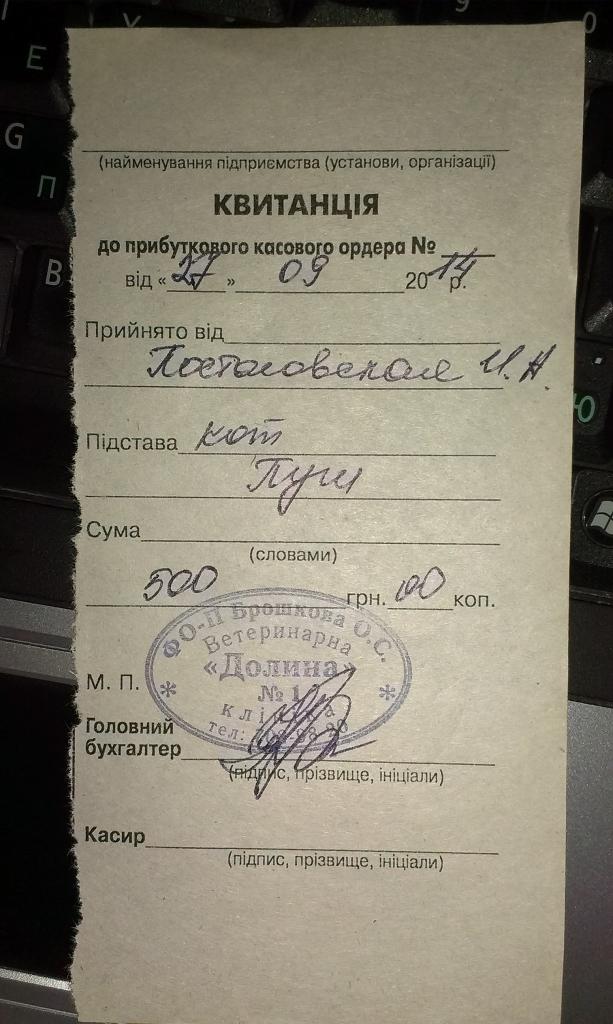 (найменування підприємства (установи, організації)
КВИТАНЦІЯ
до прибуткового касового ордера №
від «27» 09 2014 р.
Прийнято від
И. Н.
Підстава кот
Пуш
Сума
(словами)
500 грн. 00 коп.
ФО-П Брошкова О.С.
Ветеринарна
«Долина»
№ 1
клініка
тел:
М. П.
Головний
бухгалтер
(підпис, прізвище, ініціали)
Касир
(підпис, прізвище, ініціали)